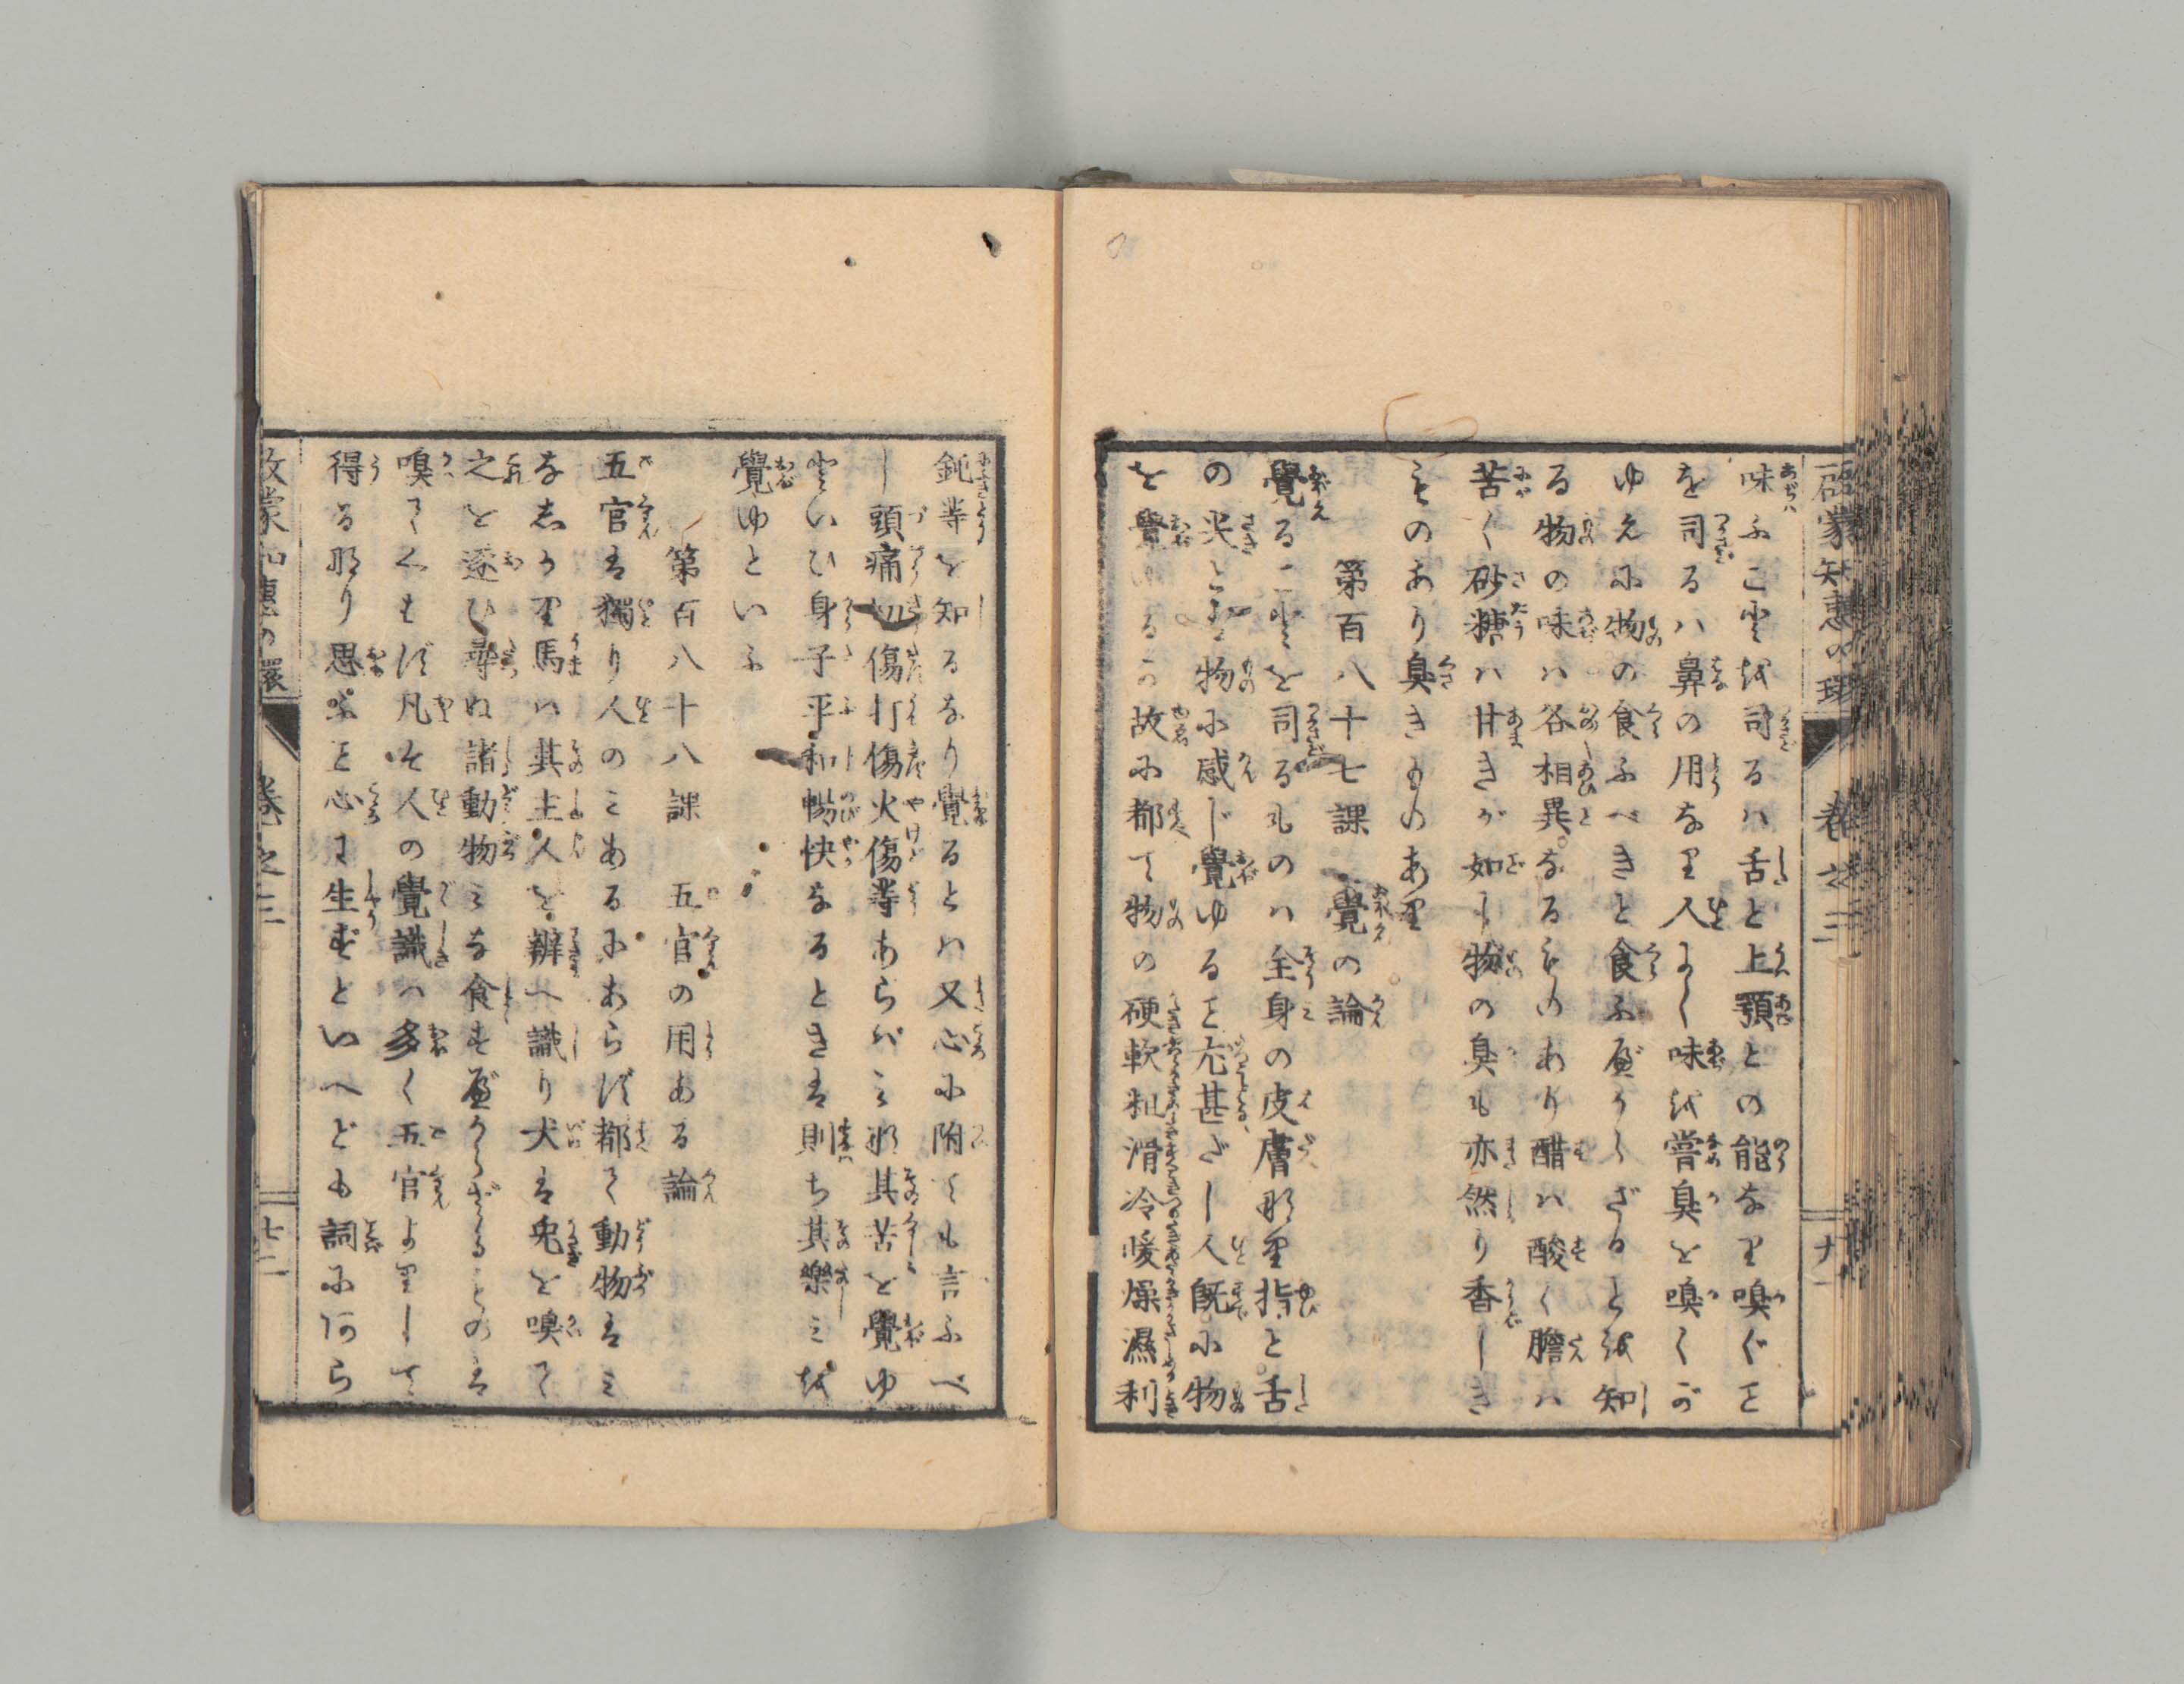 啓蒙知惠の環 巻之三
味ふこと越司るハ舌と上顎との能なり嗅ぐこと
を司るハ鼻の用なり人よく味越嘗臭を嗅くが
ゆえに物の食ふべきと食ふ可からざると越知
る物の味ハ各相異なるものあり醋ハ酸く膽ハ
苦く砂糖ハ甘きが如し物の臭も亦然り香しき
ものあり臭きものあり
第百八十七課 覺の論
覺ることを司るものハ全身の皮膚なり指と舌
の尖とは物に感じ覺ゆること尤甚ざし人既に物
を覺ゆるこ故に都て物の硬軟粗滑冷暖燥濕利
鈍等を知るなり覺るとハ又心に附ても言ふべ
し頭痛切傷打傷火傷等あらバミな其苦を覺ゆ
といひ身子平和暢快なるときは則ち其樂ミ越
覺ゆといふ
第百八十八課 五官の用ある論
五官は獨り人のミあるにあらず都て動物はミ
な志かり馬ハ其主人を辨へ識り犬は兎を嗅て
之を逐ひ尋ね諸動物ミな食す可からざるものは
嗅てくはず凡そ人の覺識ハ多く五官よりして
得る那り思ふこと心に生ずといへども詞にあら
啓蒙知惠の環 巻之三 七二